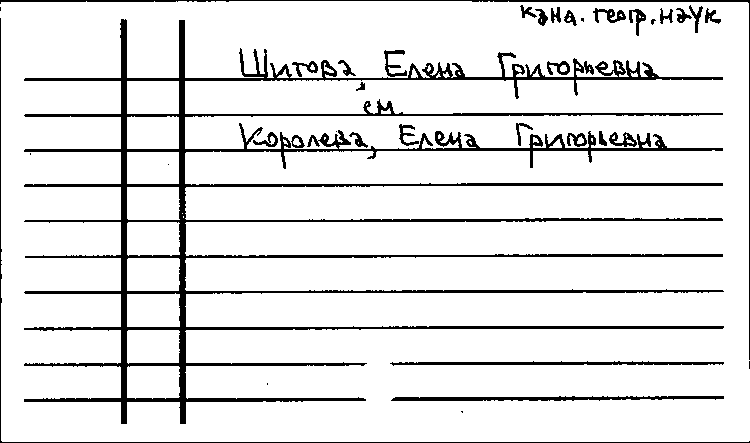 канд. геогр. наук
Шитова, Елена Григорьевна
см.
Королева, Елена Григорьевна